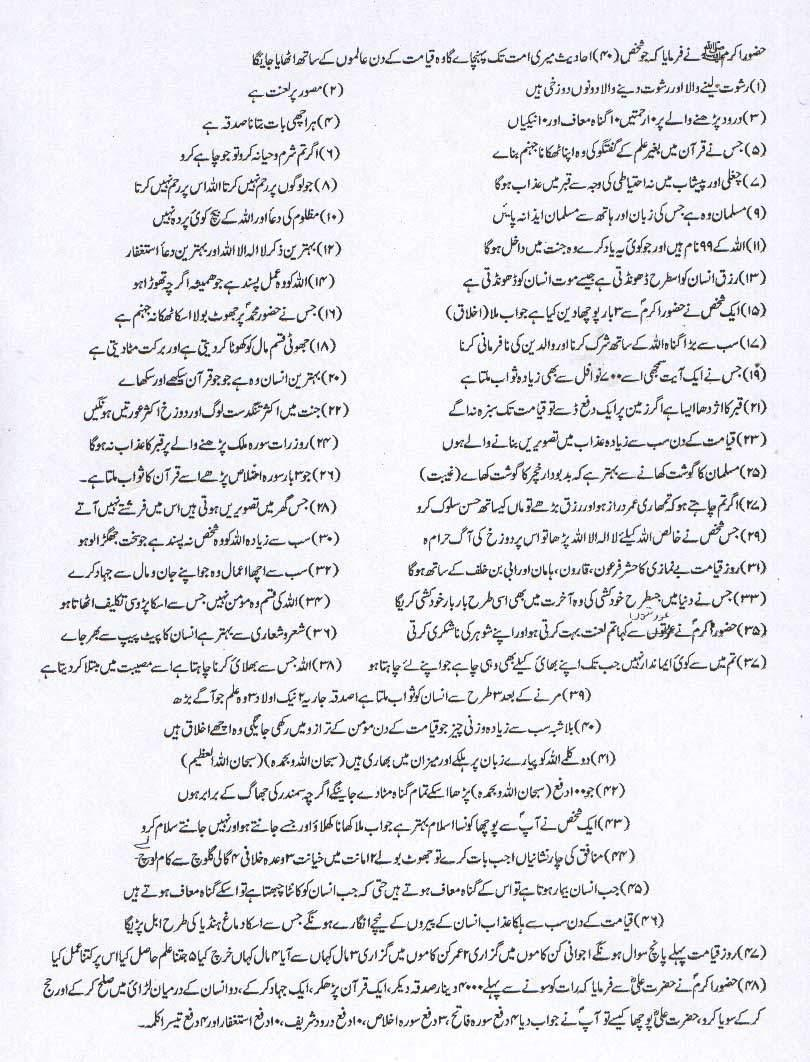 حضور اکرم ﷺ نے فرمایا کہ جو شخص (۴۰) احادیث میری امت تک پہنچاے گا وہ قیامت کے دن عالموں کے ساتھ اٹھایا جایئگا
(۱) رشوت لینے والا اور رشوت دینے والا دونوں دوزخی ہیں (۲) مصور پر لعنت ہے
(۳) درود پڑھنے والے پر ۱۰ رحمتیں ۱۰ گناہ معاف اور ۱۰ نیکیاں (۴) ہر اچھی بات بتانا صدقہ ہے
(۵) جس نے قرآن میں بغیر علم کے گفتگو کی وہ اپنا ٹھکانا جہنم بناے (۶) اگر تم شرم و حیا نہ کرو تو جو چاہے کرو
(۷) چغلی اور پیشاب میں نہ احتیاطی کی وجہ سے قبر میں عذاب ہوگا (۸) جو لوگوں پر رحم نہیں کرتا اللہ اس پر رحم نہیں کرتا
(۹) مسلمان وہ ہے جس کی زبان اور ہاتھ سے مسلمان ایذا نہ پایئں (۱۰) مظلوم کی دعا اور اللہ کے بیچ کوئ پردہ نہیں
(۱۱) اللہ کے ۹۹ نام ہیں اور جو کوئ یہ یاد کرے وہ جنت میں داخل ہوگا (۱۲) بہترین ذکر لا الہ الا اللہ اور بہترین دعا استغفار
(۱۳) رزق انسان کو اسطرح ڈھونڈتی ہے جیسے موت انسان کو ڈھونڈتی ہے (۱۴) اللہ کو وہ عمل پسند ہے جو ھمیشہ اگرچہ تھوڑا ہو
(۱۵) ایک شخص نے حضور اکرمؐ سے ۳ بار پوچھا دین کیا ہے جواب ملا (اخلاق) (۱۶) جس نے حضور محمدؐ پر جھوٹ بولا اسکا ٹھکانہ جہنم ہے
(۱۷) سب سے بڑا گناہ اللہ کے ساتھ شرک کرنا اور والدین کی نافرمانی کرنا (۱۸) جھوٹی قسم مال کو کھوٹا کردیتی ہے اور برکت مٹادیتی ہے
(۱۹) جس نے ایک آیت سمجھی اسے ۷۰۰ نوافل سے بھی زیادہ ثواب ملتا ہے (۲۰) بہترین انسان وہ ہے جو جو قرآن سیکھے اور سکھاے
(۲۱) قبر کا اژدھا ایسا ہے اگر زمین پر ایک دفع ڈسے تو قیامت تک سبزہ نہ اگے (۲۲) جنت میں اکثر تنگدست لوگ اور دوزخ اکثر عورتیں ہونگیں
(۲۳) قیامت کے دن سب سے زیادہ عذاب میں تصویریں بنانے والے ہوں (۲۴) روز رات سورہ ملک پڑھنے والے پر قبر کا عذاب نہ ہوگا
(۲۵) مسلمان کا گوشت کھانے سے بہتر ہے کہ بدبودار خچر کا گوشت کھاے (غیبت) (۲۶) جو ۳ بار سورہ اخلاص پڑھے اسے قرآن کا ثواب ملتا ہے۔
(۲۷) اگر تم چاہتے ہو کہ تمھاری عمر دراز ہو اور رزق بڑھے تو ماں کیساتھ حسن سلوک کرو (۲۸) جس گھر میں تصویریں ہوتی ہیں اس میں فرشتے نہیں آتے
(۲۹) جس شخص نے خالص اللہ کیلئے لا الہ الا اللہ پڑھا تو اس پر دوزخ کی آگ حرام ہ (۳۰) سب سے زیادہ اللہ کو وہ شخص نہ پسند ہے جو سخت جھگڑالو ہو
(۳۱) روز قیامت بے نمازی کا حشر فرعون، قارون، ہامان اور ابی بن خلف کے ساتھ ہوگا (۳۲) سب سے اچھا اعمال وہ جو اپنے جان و مال سے جہاد کرے
(۳۳) جس نے دنیا میں جسطرح خودکشی کی وہ آخرت میں بھی اسی طرح بار بار خودکشی کریگا (۳۴) اللہ کی قسم وہ مؤمن نہیں جس سے اسکا پڑوسی تکلیف اٹھاتا ہو
(۳۵) حضور اکرمؐ نے عورتوں سے کہا تم لعنت بہت کرتی ہو اور اپنے شوہر کی ناشکری کرتی (۳۶) شعر و شعاری سے بہتر ہے انسان کا پیٹ پیپ سے بھر جاے
(۳۷) تم میں سے کوئ ایماندار نہیں جب تک اپنے بھائ کیلے بھی وہی چاہے جو اپنے لئے چاہتا ہو (۳۸) اللہ جس سے بھلائ کرنا چاہتا ہے اسے مصیبت میں مبتلا کردیتا ہے
(۳۹) مرنے کے بعد ۳ طرح سے انسان کو ثواب ملتا ہے ۱ صدقہ جاریہ ۲ نیک اولاد ۳ وہ علم جو آگے بڑھ
(۴۰) بلاشبہ سب سے زیادہ وزنی چیز جو قیامت کے دن مؤمن کے ترازو میں رکھی جایگی وہ اچھے اخلاق ہیں
(۴۱) دو کلمے اللہ کو پیارے زبان پر ہلکے اور میزان میں بھاری ہیں (سبحان اللہ وبحمدہ) (سبحان اللہ العظیم)
(۴۲) جو ۱۰۰ دفع (سبحان اللہ وبحمدہ) پڑھا اسکے تمام گناہ مٹادے جاینگے اگرچہ سمندر کی جھاگ کے برابر ہوں
(۴۳) ایک شخص نے آپؐ سے پوچھا کونسا اسلام بہتر ہے جواب ملا کھانا کھلاؤ اور جسے جانتے ہو اور نہیں جانتے سلام کرو
(۴۴) منافق کی چار نشانیاں ۱ جب بات کرے تو جھوٹ بولے ۲ امانت میں خیانت ۳ وعدہ خلافی ۴ گالی گلوچ سے کام لے
(۴۵) جب انسان بیمار ہوتا ہے تو اس کے گناہ معاف ہوتے ہیں حتی کہ جب انسان کو کانٹا چبھتا ہے تو اسکے گناہ معاف ہوتے ہیں
(۴۶) قیامت کے دن سب سے ہلکا عذاب انسان کے پیروں کے نیچے انگارے ہونگے جس سے اسکا دماغ ہنڈیا کی طرح ابل پڑیگا
(۴۷) روز قیامت پہلے پانچ سوال ہونگے ۱ جوانی کن کاموں میں گزاری ۲ عمر کن کاموں میں گزاری ۳ مال کہاں سے آیا ۴ مال کہاں خرچ کیا ۵ جتنا علم حاصل کیا اس پر کتنا عمل کیا
(۴۸) حضور اکرمؐ نے حضرت علیؓ سے فرمایا کہ رات کو سونے سے پہلے ۴۰۰۰ دینار صدقہ دیکر، ایک قرآن پڑھکر، ایک جہاد کرکے، دو انسان کے درمیان لڑائ میں صلح کرکے اور حج
کرکے سویا کرو، حضرت علیؓ پوچھا کیسے تو آپؐ نے جواب دیا ۴ دفع سورہ فاتح، ۳ دفع سورہ اخلاص، ۱۰ دفع درود شریف، ۱۰ دفع استغفار اور ۴ دفع تیسرا کلمہ۔